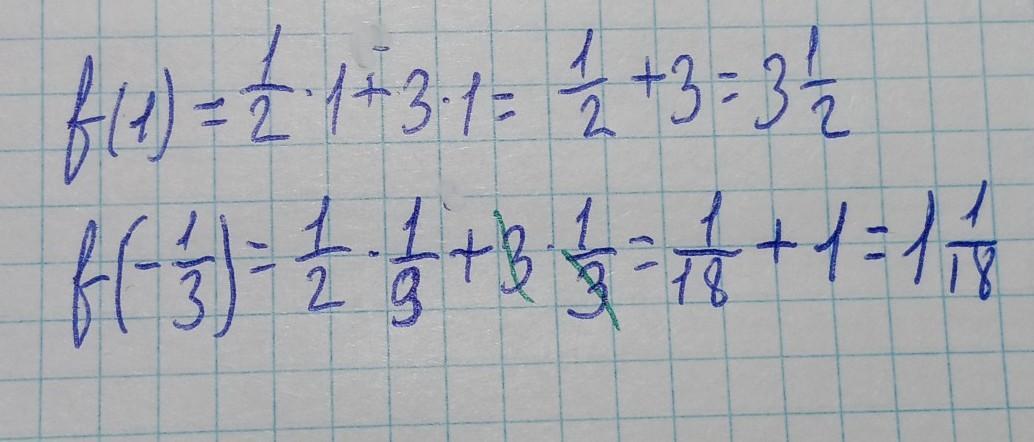 f(1) = 1/2 · 1 + 3 · 1 = 1/2 + 3 = 3 1/2
f(-1/3) = 1/2 · 1/9 + 3 · 1/3 = 1/18 + 1 = 1 1/18